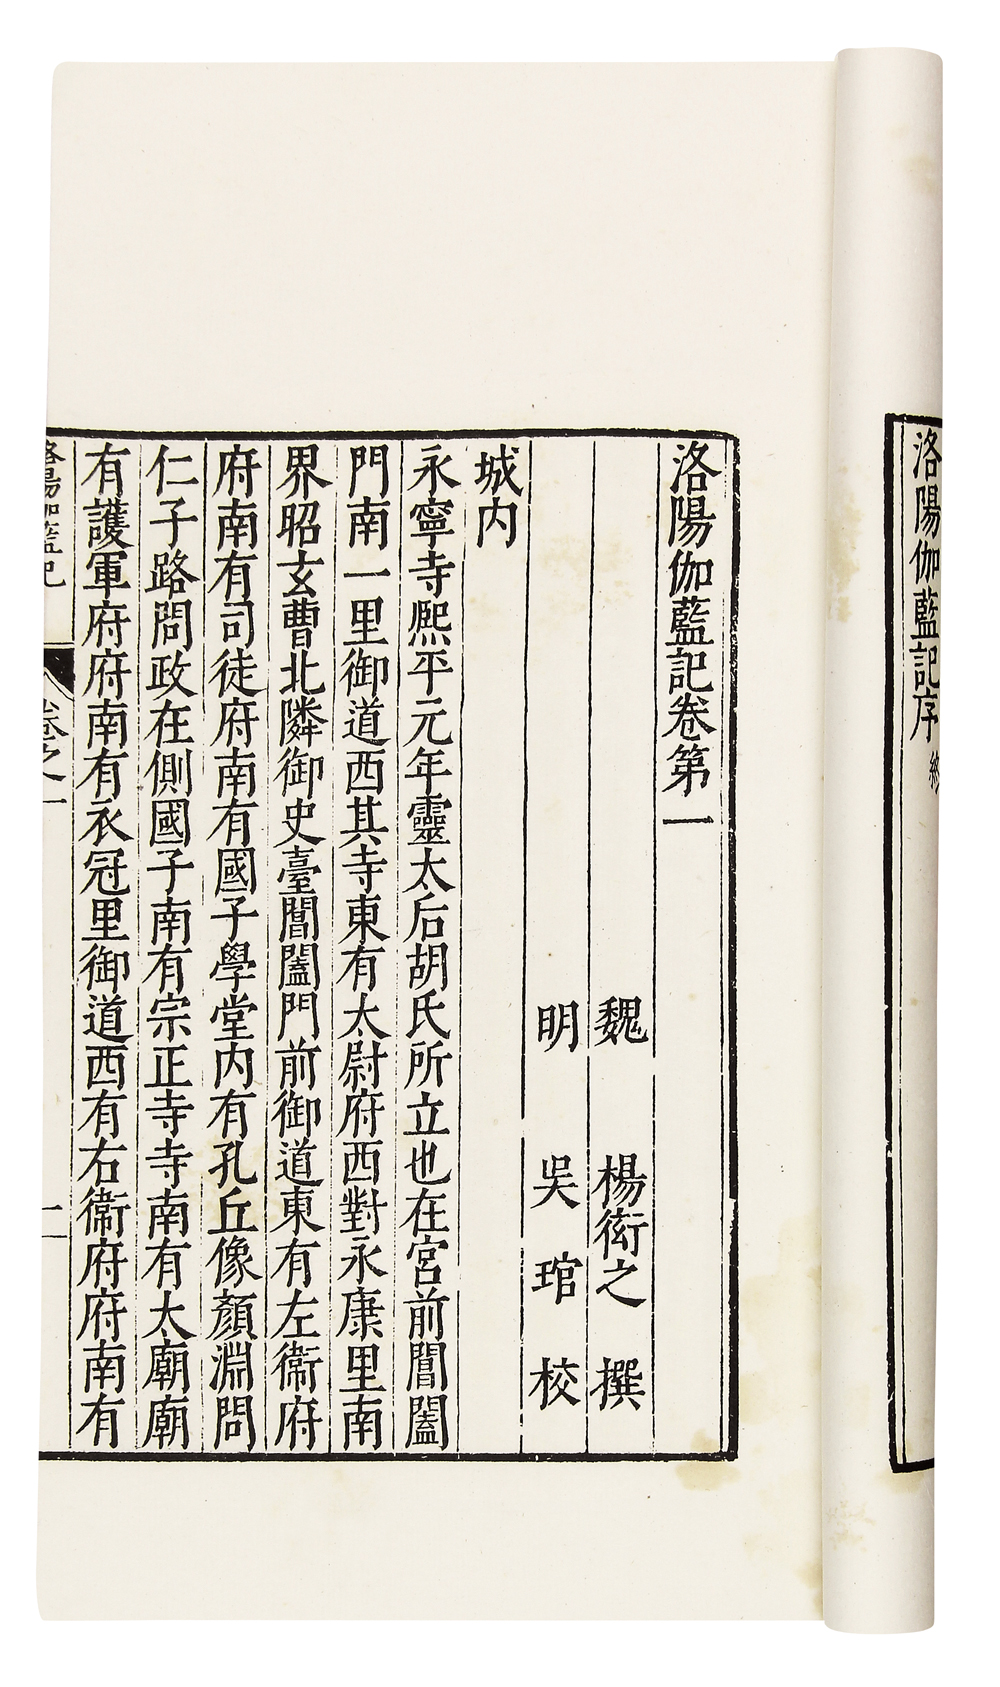 洛陽伽藍記序終
洛陽伽藍記卷第一
魏 楊衒之 撰
明 吳琯 校
城内
永寧寺熈平元年靈太后胡氏所立也在宮前閶闔
門南一里御道西其寺東有太尉府西對永康里南
界昭玄曹北隣御史臺閶闔門前御道東有左衞府
府南有司徒府南有國子學堂内有孔丘像顔淵問
仁子路問政在側國子南有宗正寺寺南有太廟廟
有護軍府府南有衣冠里御道西有右衞府府南有
洛陽伽藍記 卷之一 一